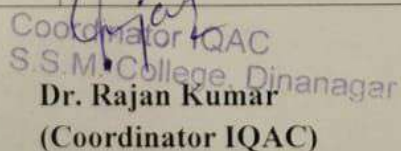 Coordinator IQAC
S.S.M. College, Dinanagar
Dr. Rajan Kumar
(Coordinator IQAC)